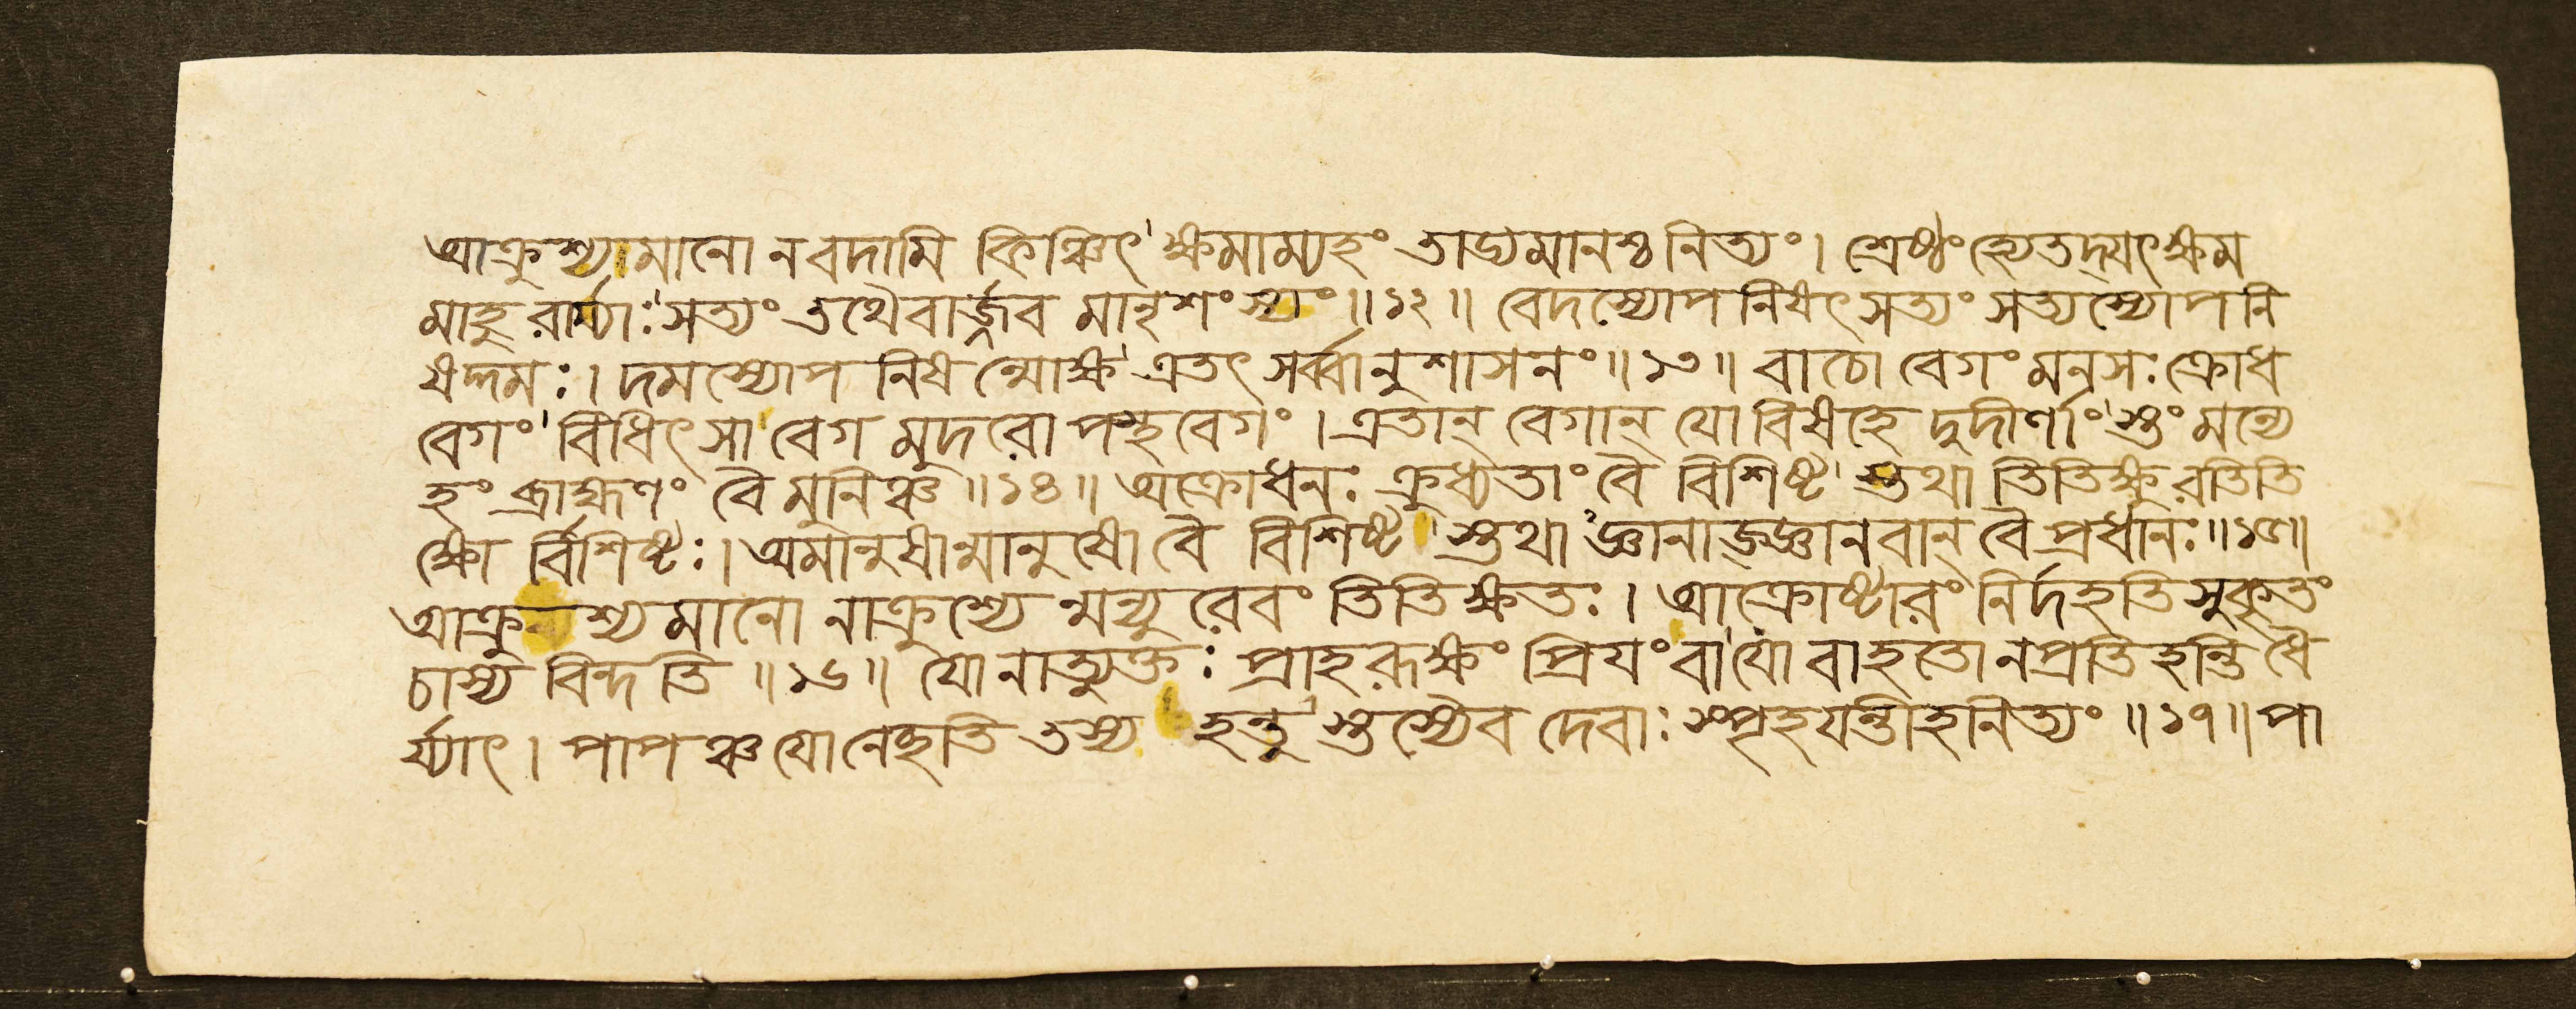 আক্রুশ্যমানো ন বদামি কিঞ্চিৎ' ক্ষমাম্যহং তাড্যমানশ্চ নিত্যং। শ্রেষ্ঠং হ্যেতদ্যৎ ক্ষম
মাহুরার্য্যাঃ' সত্যং তথৈবার্জ্জব মানৃশংস্যং॥১২॥ বেদস্যোপনিষৎ সত্যং সত্যস্যোপনি
ষদ্দমঃ। দমস্যোপনিষন্মোক্ষ' এতৎ সর্ব্বানুশাসনং॥১৩॥ বাচো বেগং মনসঃ ক্রোধ
বেগং' বিধিৎসা বেগ মুদরোপস্থবেগং। এতান্ বেগান্ যো বিষহে দুদীর্ণাং' স্তং মন্যে
হং ব্রাহ্মণং বৈ মুনিঞ্চ॥১৪॥ অক্রোধনঃ ক্রুধ্যতাং বৈ বিশিষ্ট' স্তথা তিতিক্ষুরতিতি
ক্ষো র্বিশিষ্টঃ। অমানুষান্মানুষো বৈ বিশিষ্ট' স্তথা জ্ঞানাজ্জ্ঞানবান্ বৈ প্রধানঃ॥১৫॥
আক্রুশ্যমানো নাক্রুশ্যে ন্মন্যুরেবং তিতিক্ষতঃ। আক্রোষ্টারং নির্দহতি সুকৃতং
চাস্য বিন্দতি॥১৬॥ যো নাত্যুক্তঃ প্রাহ রূক্ষং প্রিয়ং বা' যো বা হতো ন প্রতিহন্তি ধৈ
র্য্যাৎ। পাপঞ্চ যো নেচ্ছতি তস্য হন্তু' স্তস্যেব দেবাঃ স্পৃহয়ন্তীহ নিত্যং॥১৭॥ পা